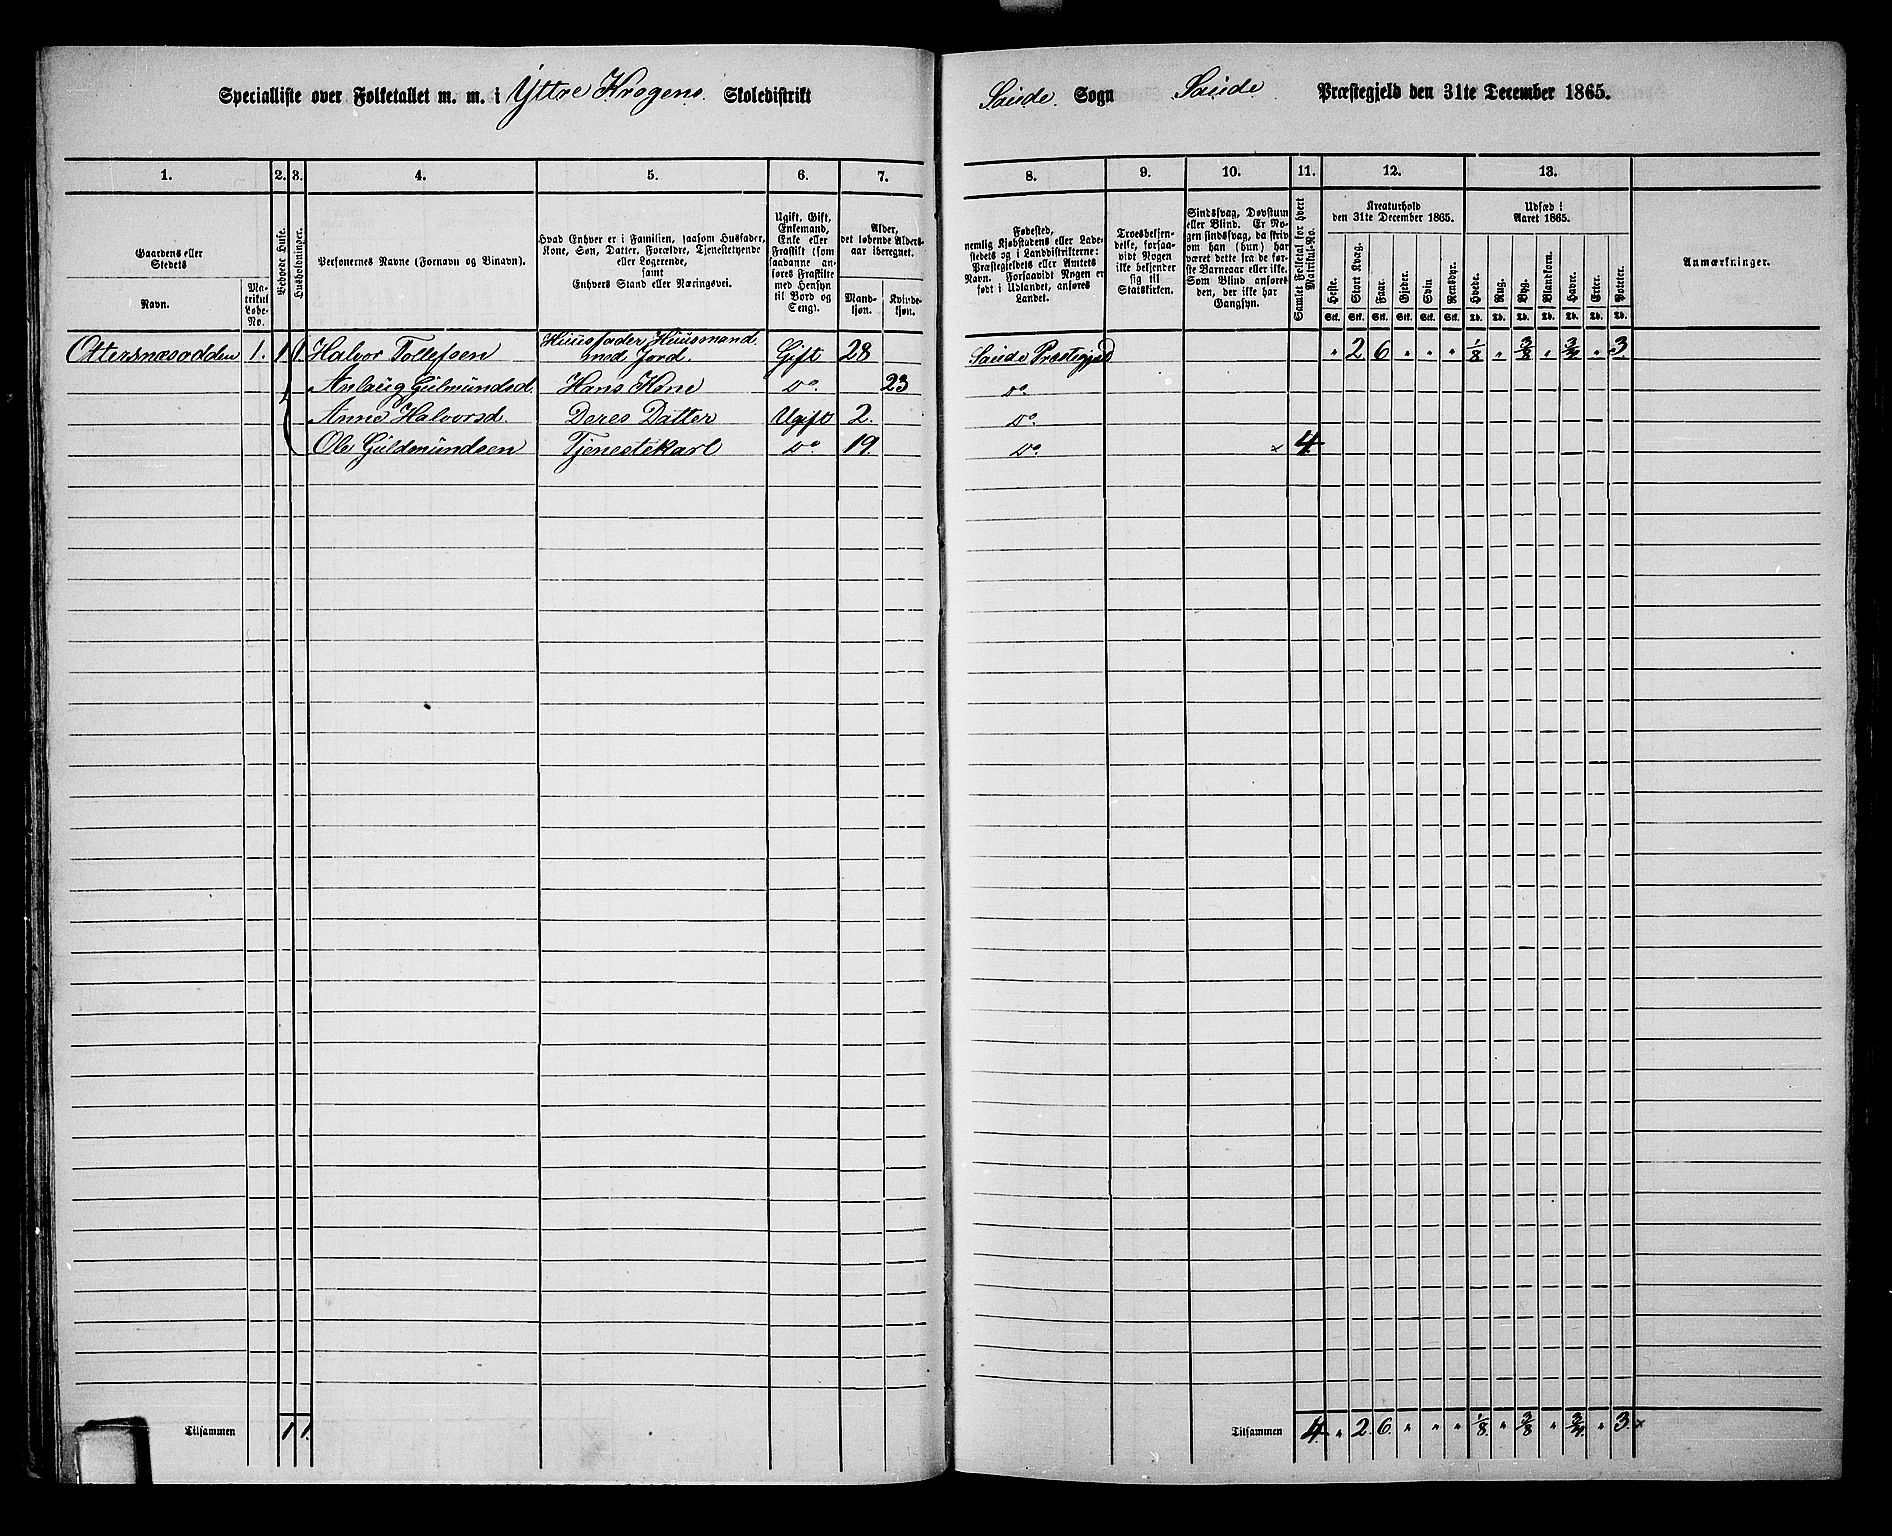 Specialliste over Folketallet m. m. i Yttre Krogens Skoledistrikt Saude Sogn Saude Præstegjeld den 31te December 1865.
1. 2. 3. 4. 5. 6. 7. 8. 9. 10. 11. 12. 13.
Gaardens eller Stedets
Navn.
Matrikul Løbe-No.
Beboede Huse.
Husholdninger.
Personernes Navne (Fornavn og Binavn).
Hvad Enhver er i Familien, saasom Husfader,
Kone, Søn, Datter, Forældre, Tjenestetyende
eller Logerende,
samt
Enhvers Stand eller Næringsvei.
Ugift, Gift,
Enkemand,
Enke eller
Fraskilt (som
saadanne an-
føres Fraskilte
med Hensyn
til Bord og
Seng).
Alder,
det løbende Alders-
aar iberegnet.
Mand-
kjøn.
Kvinde-
kjøn.
Fødested,
nemlig Kjøbstadens eller Lade-
stedets og i Landdistrikterne:
Præstegjeldets eller Amtets
Navn. Forsaavidt Nogen er
født i Udlandet, anføres
Landet.
Troesbekjen-
delse, forsaa-
vidt Nogen
ikke bekjender
sig til
Statskirken.
Sindssvag, Døvstum
eller Blind. Er No-
gen sindssvag, da skriv
om han (hun) har
været dette fra de før-
ste Barneaar eller ikke.
Som Blind anføres
den, der ikke har
Gangsyn.
Samlet Folketal for hvert
Matrikul-No.
Kreaturhold
den 31te December 1865.
Heste. Stort Kvæg. Faar. Gjeder. Svin Rensdyr.
Stk. Stk. Stk. Stk. Stk. Stk.
Udsæd i
Aaret 1865.
Hvede. Rug. Byg. Blandkorn. Havre. Erter. Poteter.
Td. Td. Td. Td. Td. Td. Td.
Anmærkninger.
Ottersnæsodden 1. 1 1. Halvor Tollefsen Huusfader Huusmand med Jord. Gift 28 Saude Præstegjeld " 2 6 " " " 1/8 " 3/8 " 3/4 " 3
Aslaug Gulmundsd. Hans Kone Do 23 Do
Anne Halvorsd. Deres Datter Ugift 2. Do
Ole Guldmundsen Tjenestekarl Do 19. Do. × 4
Tilsammen 1 1.
Tilsammen 4 " 2 6. " " " 1/8 " 3/8 " 3/4 " 3 ×